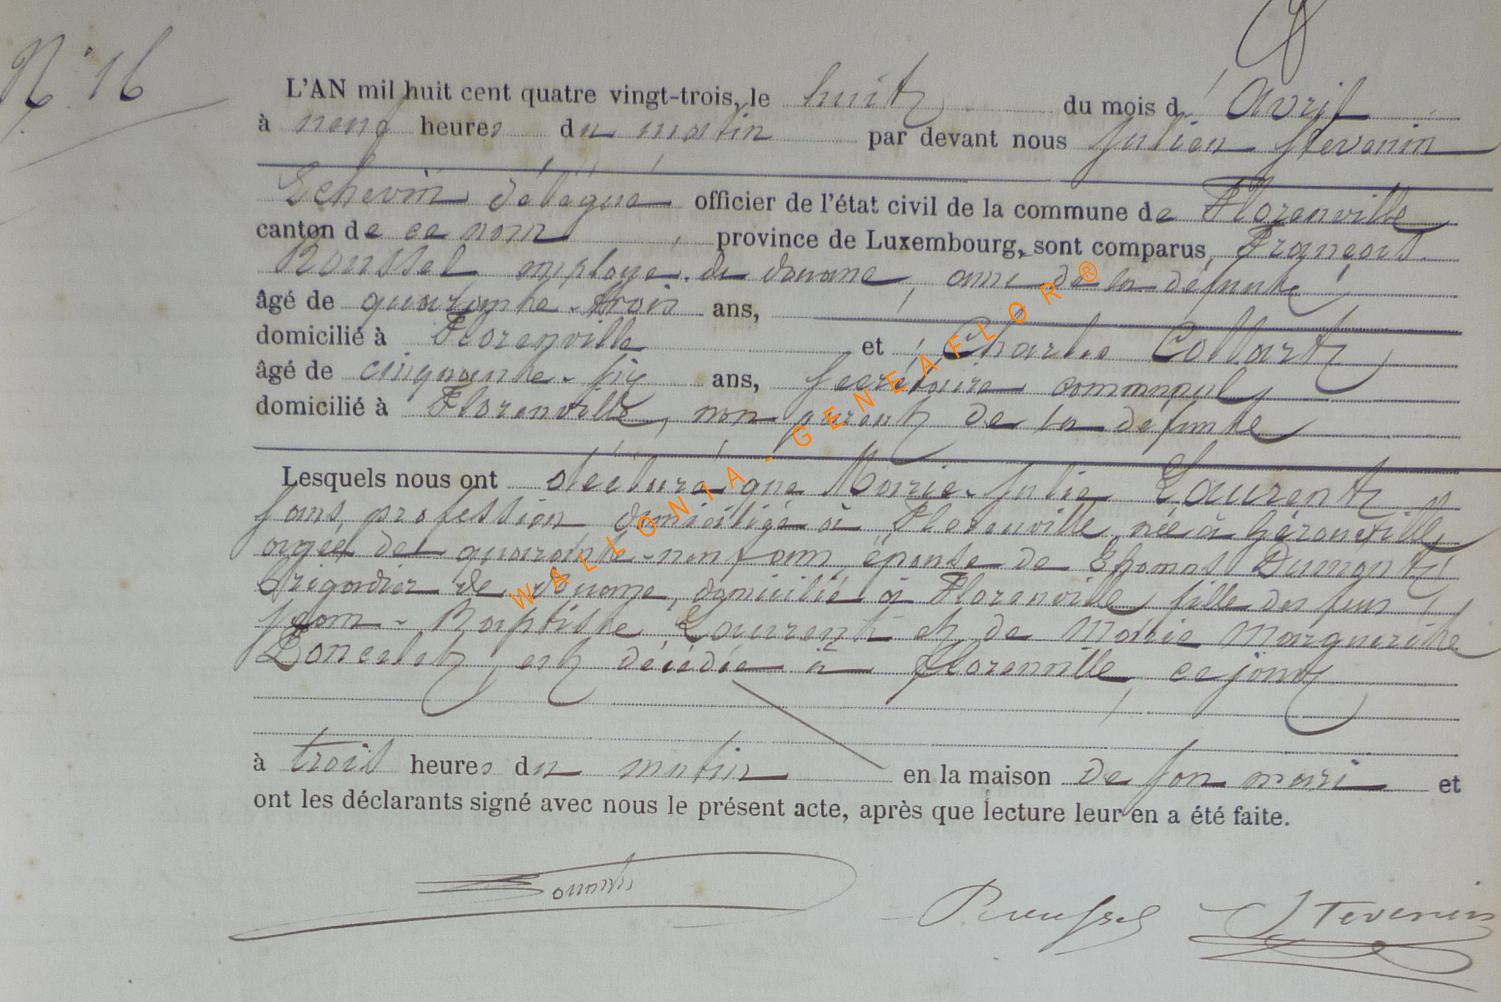 N° 16
L'AN mil huit cent quatre vingt-trois, le huit du mois d'Avril
à neuf heures du matin par devant nous Julien Stevenin
Echevin délégué officier de l'état civil de la commune de Florenville
canton de ce nom province de Luxembourg, sont comparus François
Roussel employé de douane, ami de la défunte
âgé de quarante-trois ans,
domicilié à Florenville et Charles Collart
âgé de cinquante-six ans, secrétaire communal
domicilié à Florenville, non parent de la défunte
Lesquels nous ont déclaré que Marie-Julie Laurent
sans profession domiciliée à Florenville, née à Gérouville
agée de quarante-neuf ans, épouse de Thomas Dumont
brigadier de douane, domicilié à Florenville, fille des feus
Jean-Baptiste Laurent et de Marie Marguerite
Poncelet, est décédée à Florenville, ce jour
à trois heures du matin en la maison de son mari et
ont les déclarants signé avec nous le présent acte, après que lecture leur en a été faite.
Roussel Stevenin
WALLONIA-GENEAFLOR®